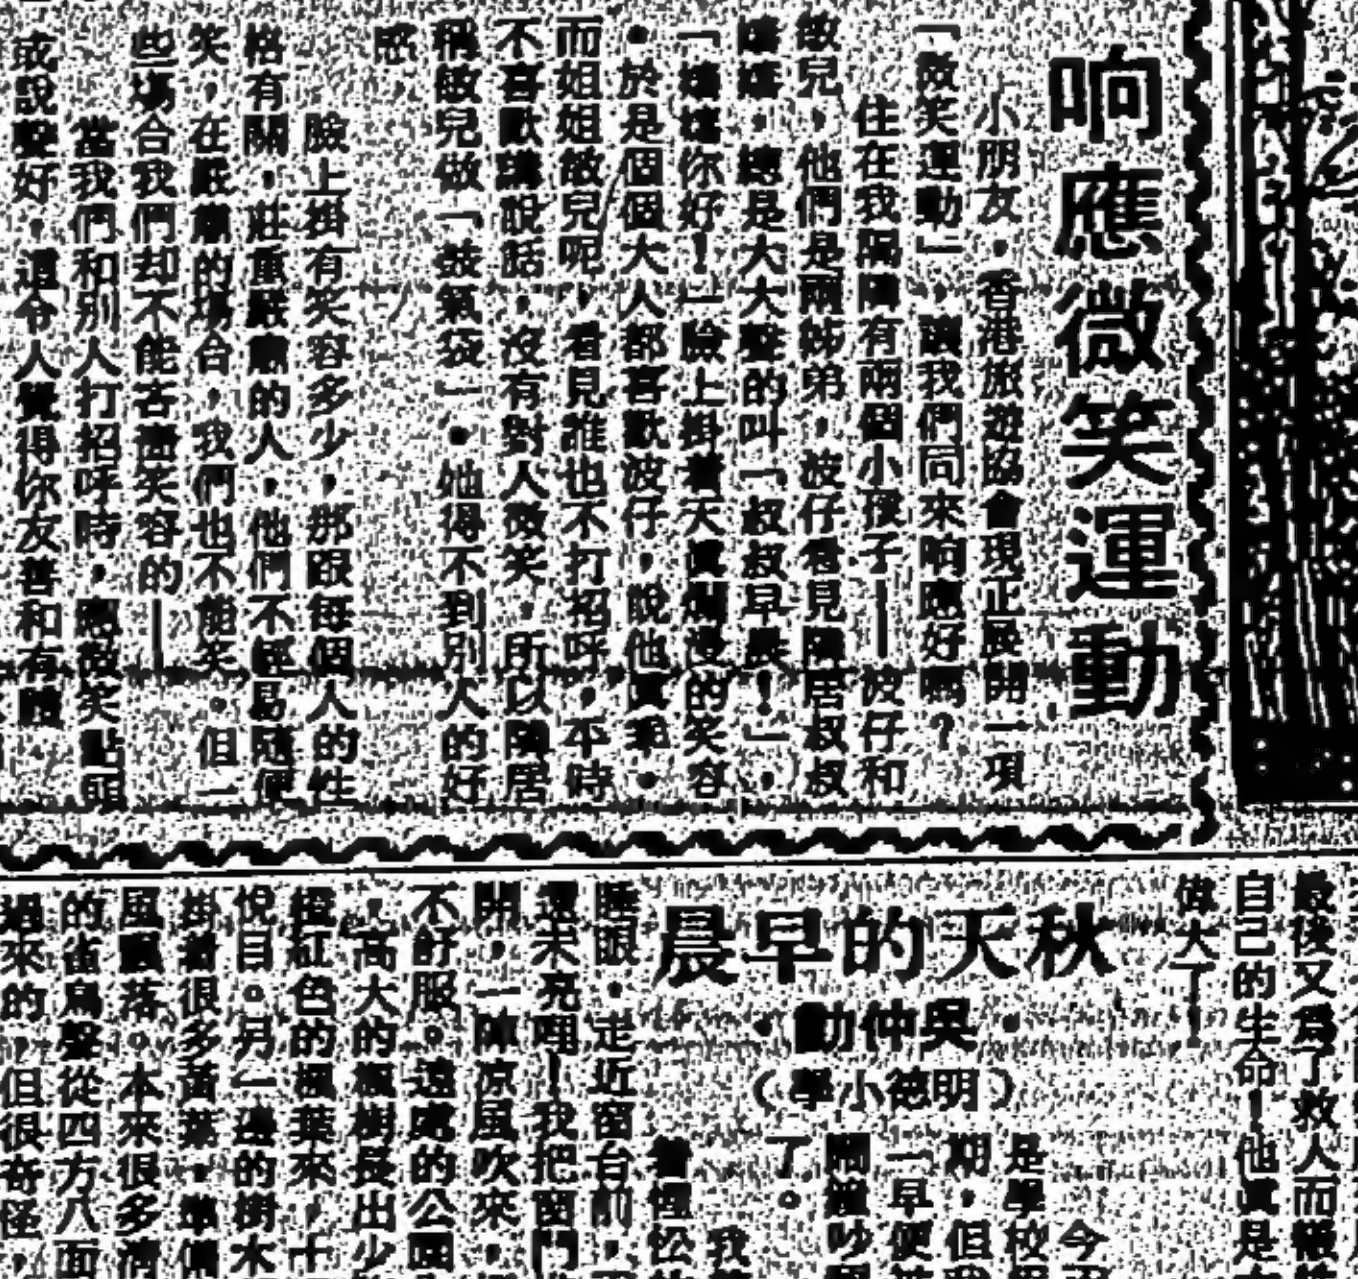 响應微笑運動
小朋友，香港旅遊協會現正展開一項
「微笑運動」，讓我們同來响應好嗎？
住在我隔鄰有兩個小孩子——波仔和
敏兒，他們是兩姊弟，波仔看見隣居叔叔
嬸嬸，總是大大聲的叫「叔叔早晨！」，
「嬸嬸你好！」臉上掛着天真爛漫的笑容
。於是個個大人都喜歡波仔，說他真乖。
而姐姐敏兒呢，看見誰也不打招呼，平時
不喜歡講說話，沒有對人微笑，所以隣居
稱敏兒做「鼓氣袋」。她得不到別人的好
感
臉上掛有笑容多少，那跟每個人的性
格有關，莊重嚴肅的人，他們不輕易隨便
笑，在嚴肅的場合，我們也不能笑。但一
些場合我們却不能吝嗇笑容的——
當我們和別人打招呼時，應微笑點頭
或說聲好，這令人覺得你友善和有
最後又爲了救人而犧
自己的生命！他真是
偉大了！
秋天的早晨
吳仲勳
（明德小學）
今
是學校
期，但我
一早便被
鬧鐘吵
了。
我
着惺忪
睡眼，走近窗台前，
還未亮哩！我把窗門
開，一陣凉風吹來，
不舒服。遠處的公園
，高大的楓樹長出少
橙紅色的楓葉來，十
悅目。另一邊的樹木
掛着很多黃葉，準備
風飄落。本來很多清
的雀鳥聲從四方八面
過來的，但很奇怪，